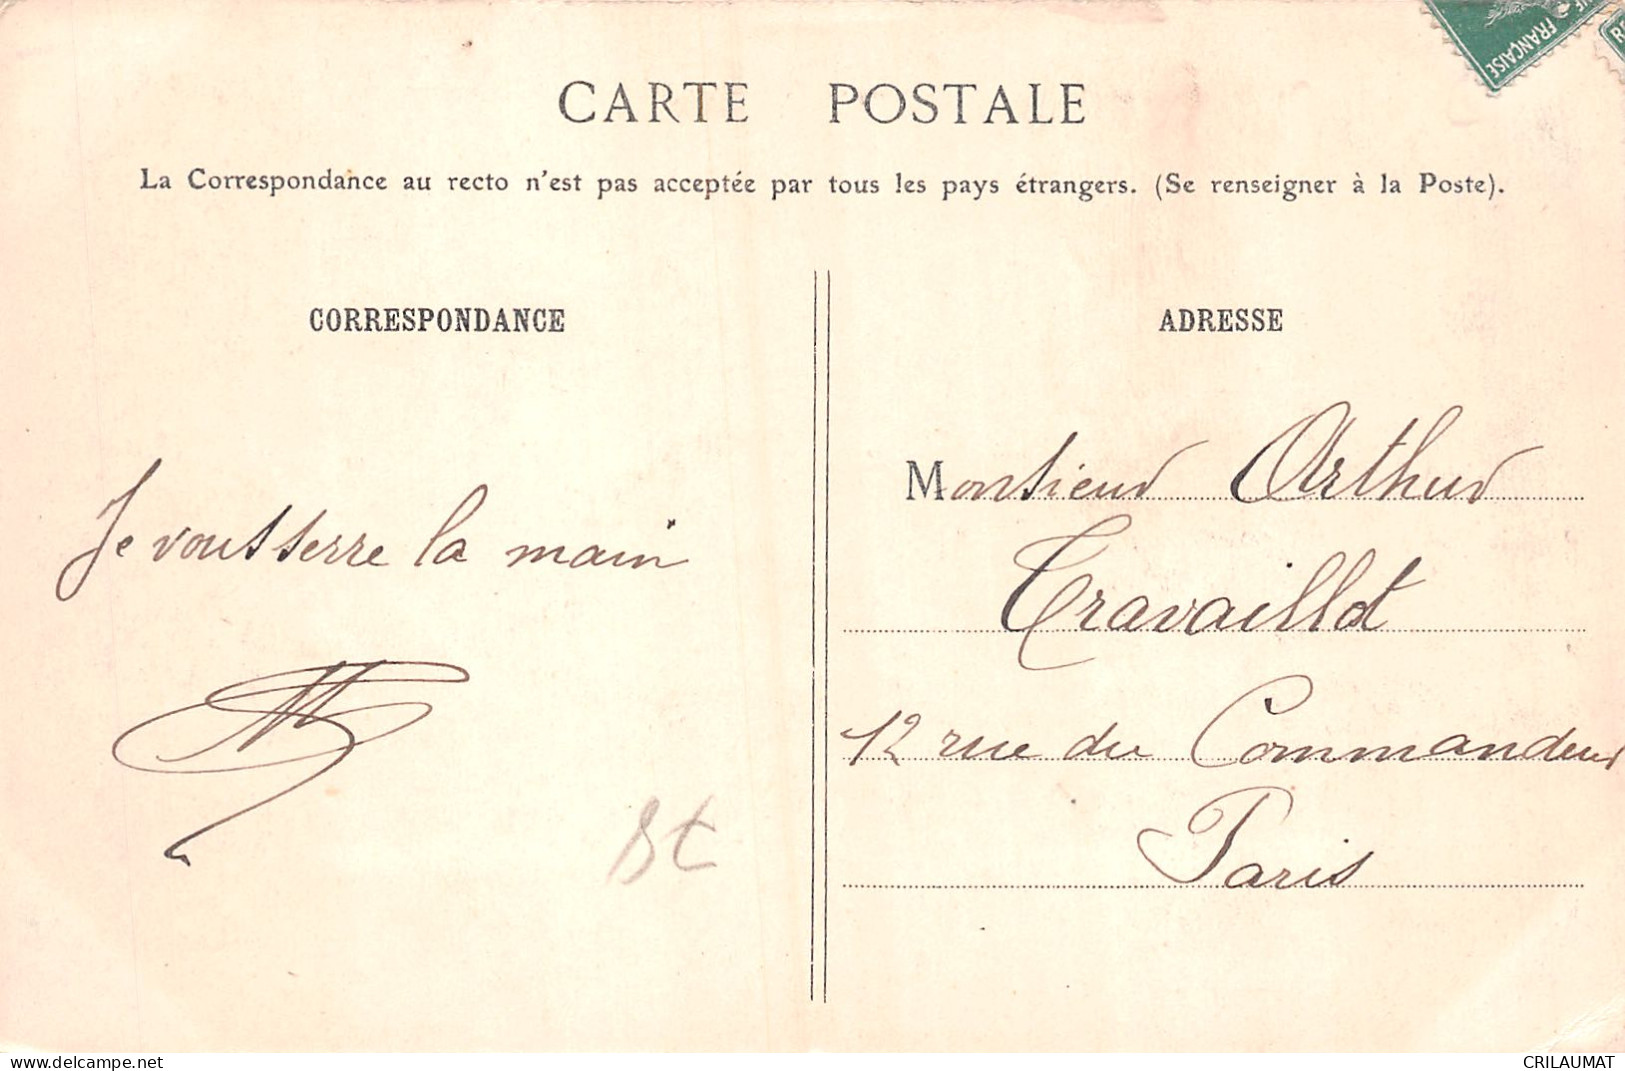 CARTE POSTALE
La Correspondance au recto n'est pas acceptée par tous les pays étrangers. (Se renseigner à la Poste).
FRANÇAISE
CORRESPONDANCE
Je vous serre la main
ADRESSE
Monsieur Arthur
Travaillot
12 rue du Commandeur
Paris
www.delcampe.net
CRILAUMAT